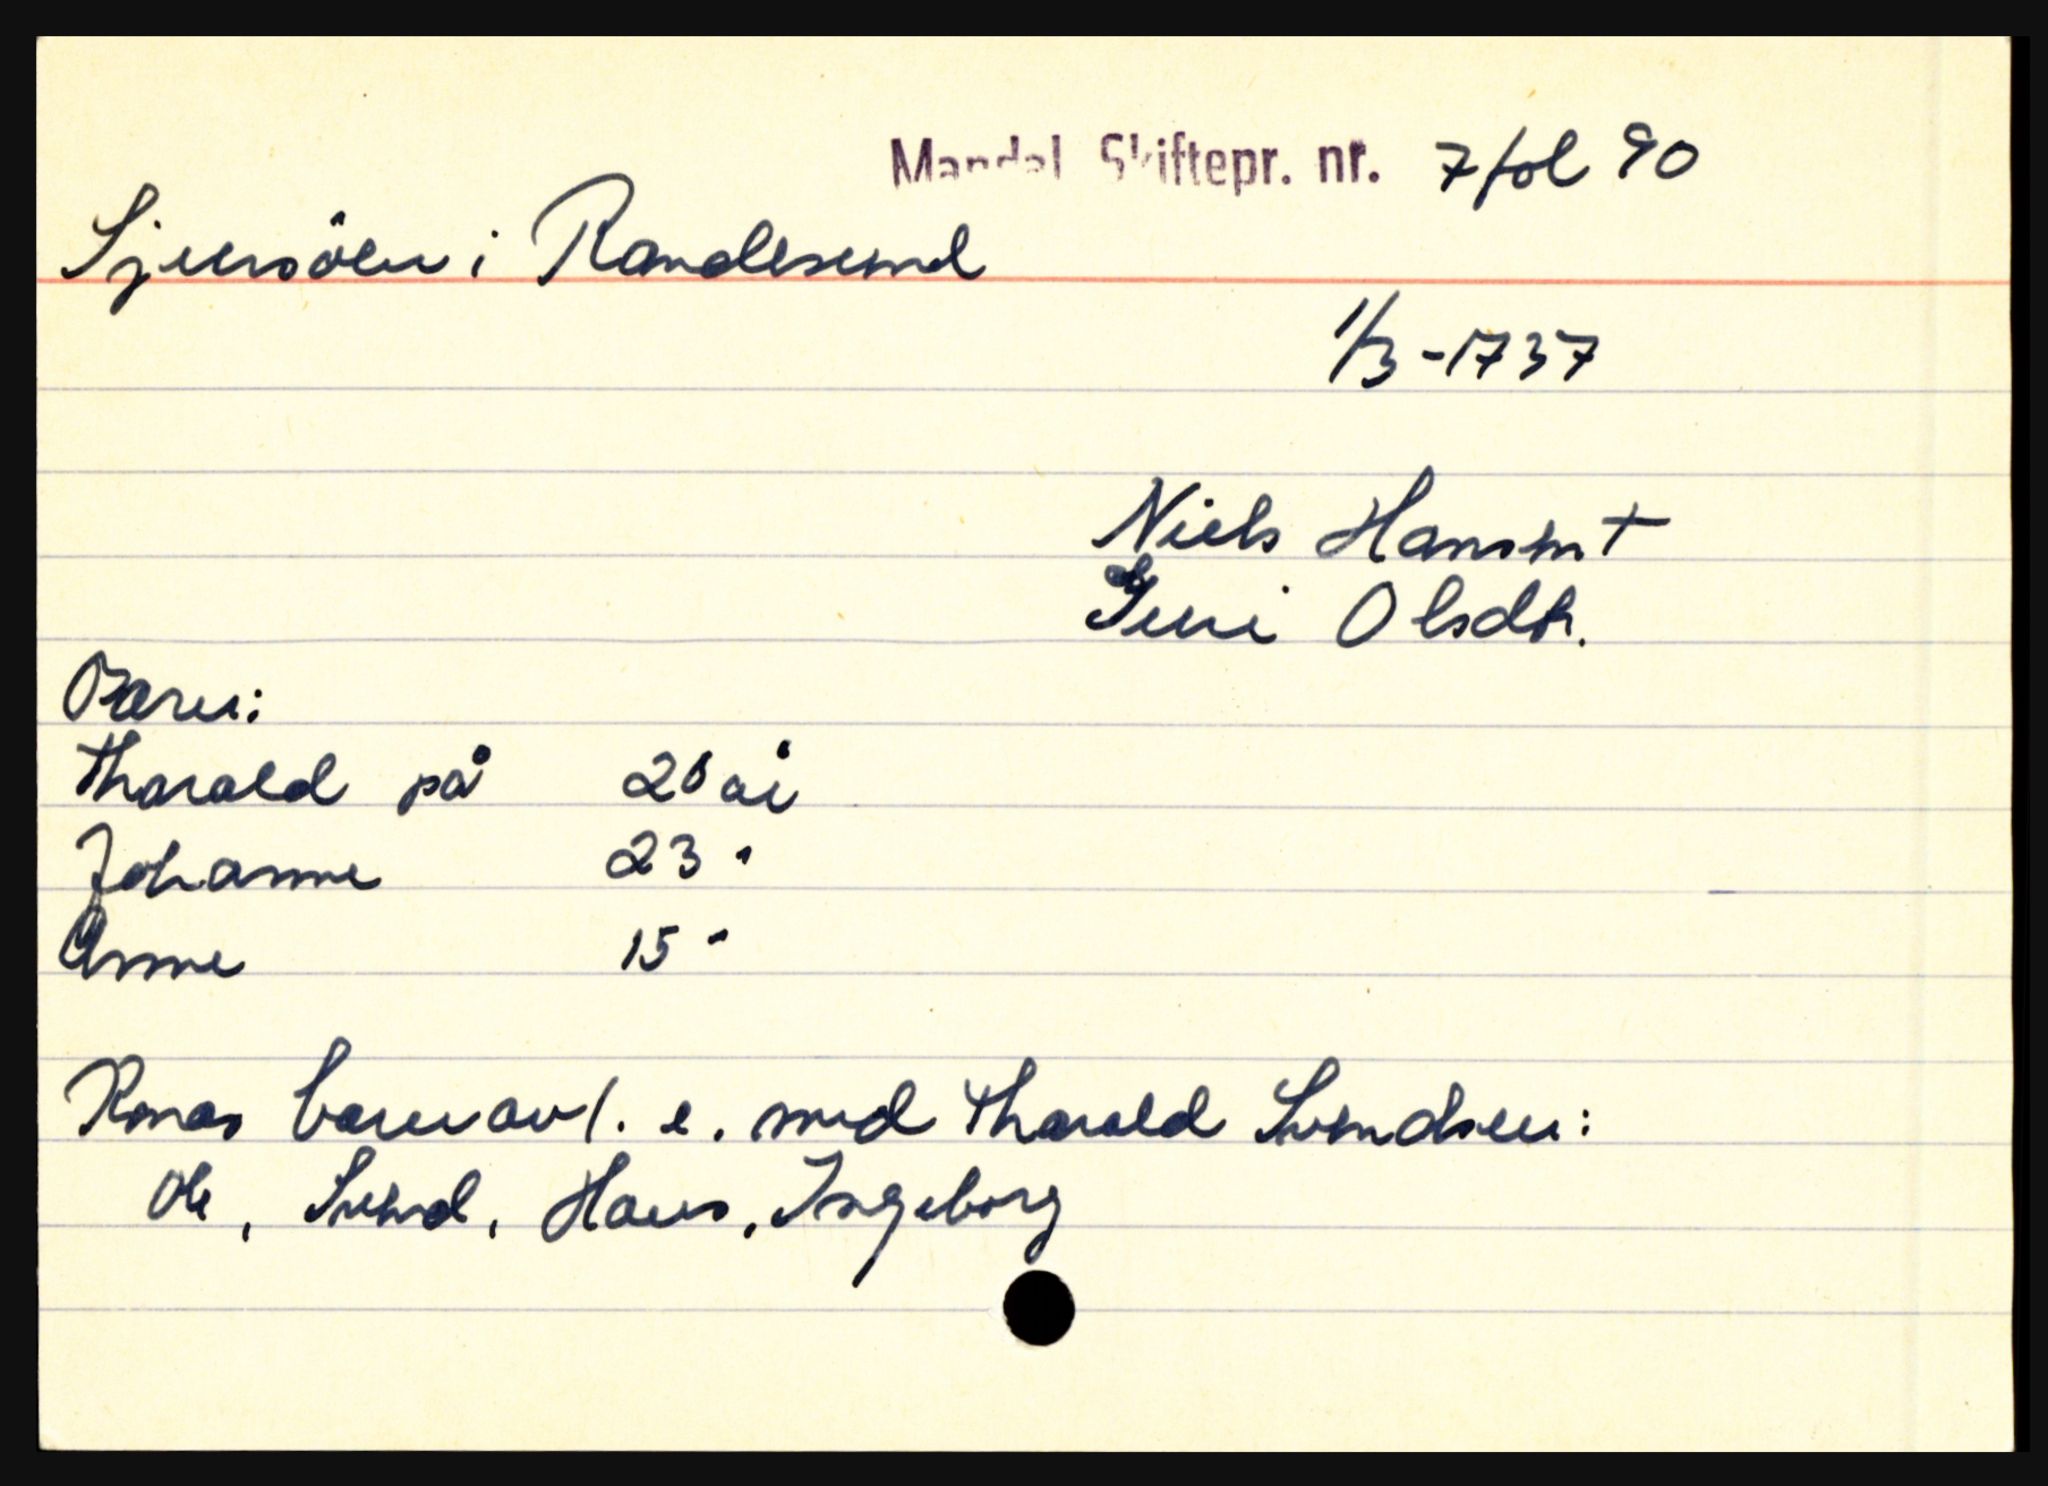 Mandal Skiftepr. nr. 7 fol 90
Sjursöen i Randesund
1/3 - 1737
Niels Hansen †
Guri Olsdtr.
Barn:
Tharald på 26 år
Johanne 23 "
Anne 15 "
Konas barn av 1. e. med Tharald Svendsen:
Ole, Svend, Hans, Ingeborg